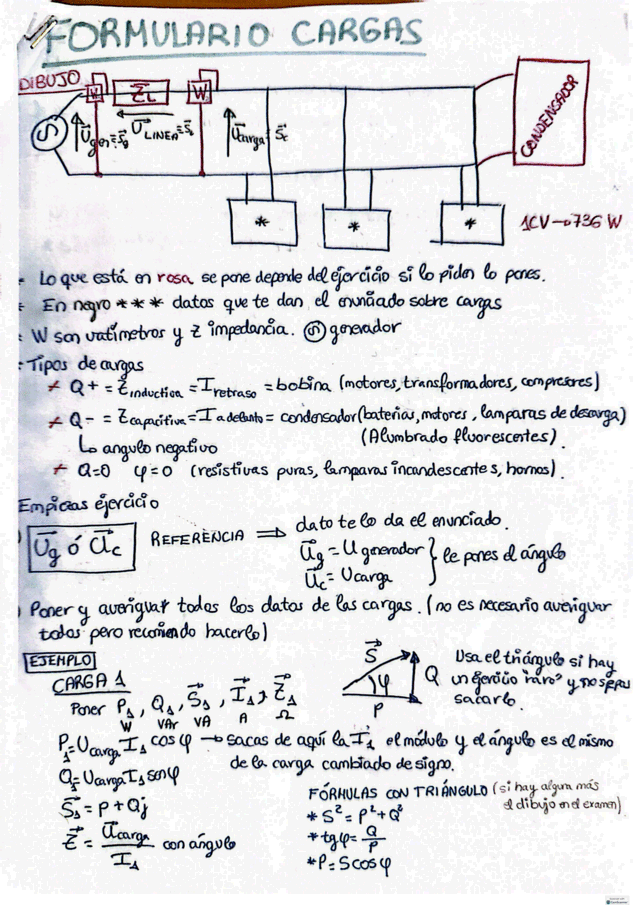 FORMULARIO CARGAS
DIBUJO
W
Z̄L
W
CONDENSADOR
S
U⃗gen=S⃗g
U⃗LINEA=S⃗L
U⃗carga=S⃗c
*
*
*
1CV→736 W
- Lo que está en rosa se pone depende del ejercicio si lo piden lo pones.
- En negro *** datos que te dan el enunciado sobre cargas
- W son vatímetros y Z impedancia. Ⓢ generador
- Tipos de cargas
* Q+ = Z̄ induction = I retraso = bobina (motores, transformadores, compresores)
* Q- = Z capacitiva = I adelanto = condensador (baterias, motores, lamparas de descarga)
↳ angulo negativo
(Alumbrado fluorescentes).
* Q=0 φ=0 (resistivas puras, lamparas incandescentes, hornos).
Empiezas ejercicio
U⃗g ó U⃗c REFERENCIA ⟹ dato te lo da el enunciado.
U⃗g = U generador } le pones el ángulo
U⃗c = Ucarga
) Poner y averiguar todos los datos de las cargas. (no es necesario averiguar
todas pero recomiendo hacerlo)
EJEMPLO
CARGA 1
Poner P1, Q1, S⃗1, I⃗1, Z⃗1
W VAr VA A Ω
S⃗
Q
φ
P
Usa el triángulo si hay
un ejercicio "raro" y no
sacarlo.
P1=Ucarga I1 cosφ → sacas de aquí la I1 el módulo y el ángulo es el mismo
de la carga cambiado de signo.
Q1=Ucarga I1 senφ
S⃗1 = P + Qj
Z⃗ = U⃗carga / I1 con ángulo
FÓRMULAS CON TRIÁNGULO (si hay alguna más
el dibujo en el examen)
* S² = P² + Q²
* tgφ = Q/P
* P = S cosφ